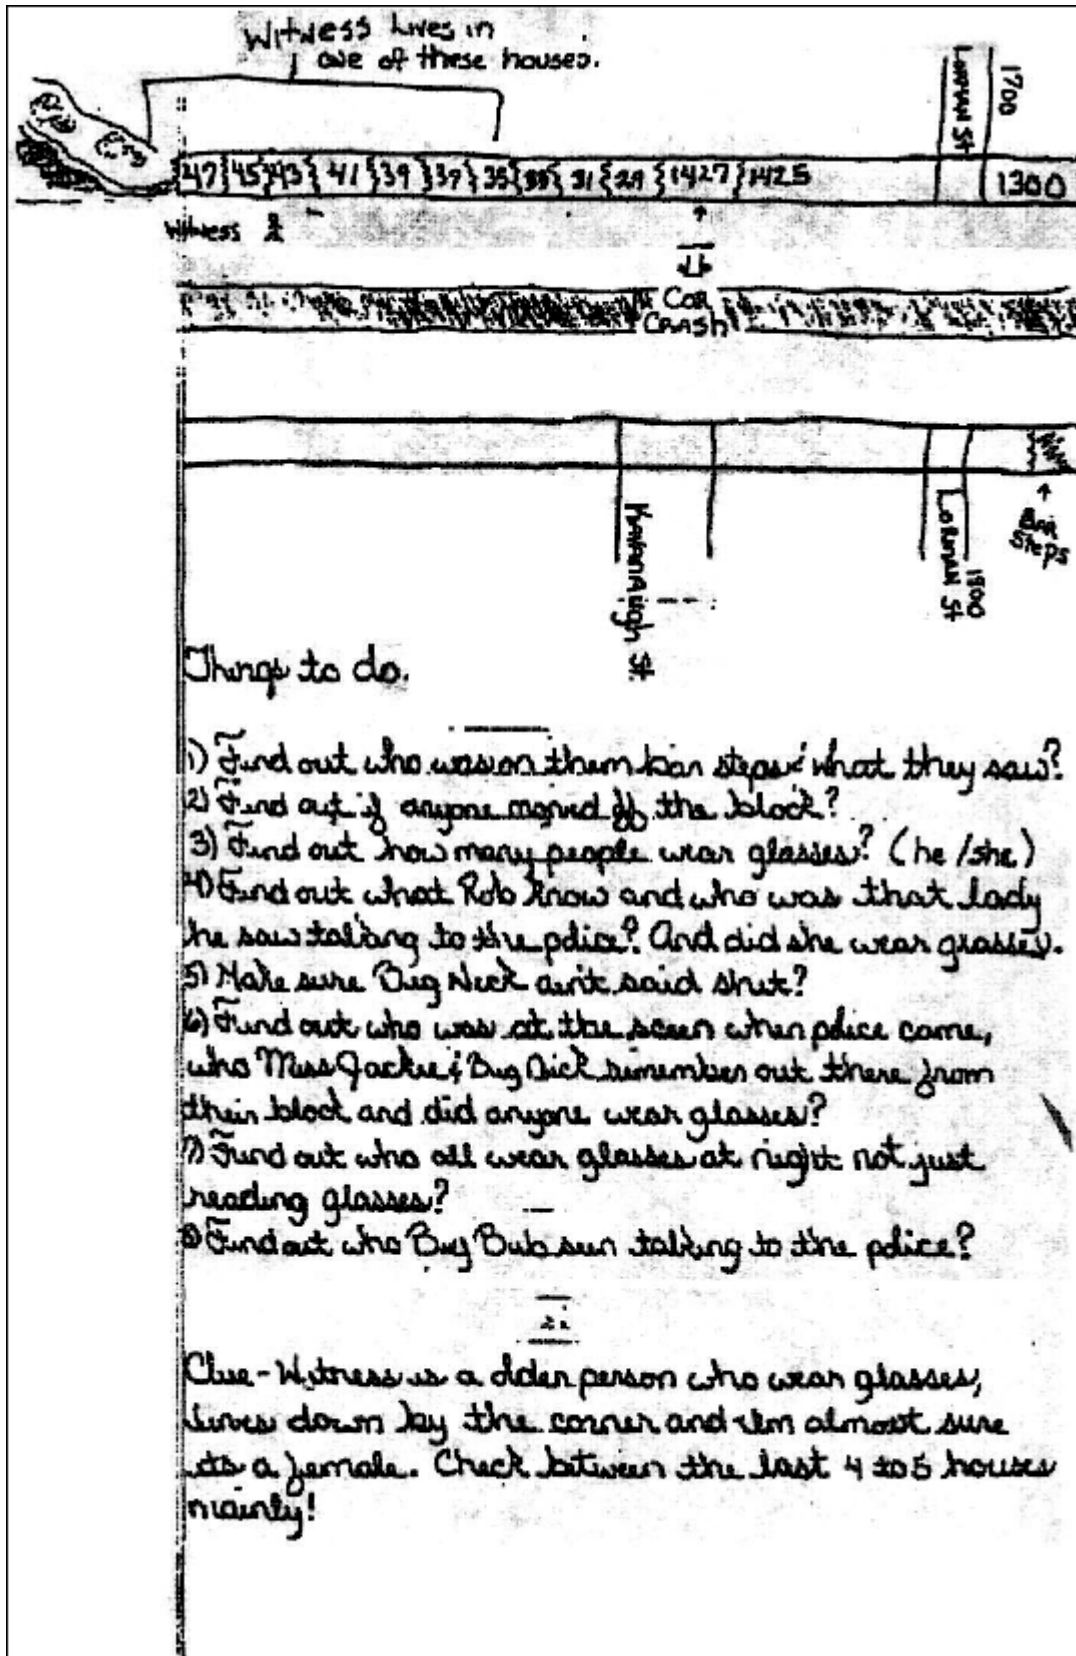 Witness Lives in
one of these houses.
1700
Lorman St
47 45 43 41 39 37 35 33 31 29 1427 1425
1300
Witness 2
Car
Crash
Kavanaugh St.
Lorman St
1500
Bar
Steps
Things to do.
1) Find out who was on them bar steps & what they saw?
2) Find out if anyone moved off the block?
3) Find out how many people wear glasses? (he/she)
4) Find out what Rob know and who was that lady
he saw talking to the police? And did she wear glasses.
5) Make sure Big Neck ain't said shit?
6) Find out who was at the sceen when police came,
who Miss Jackie & Big Dick remember out there from
their block and did anyone wear glasses?
7) Find out who all wear glasses at night not just
reading glasses?
8) Find out who Big Bub seen talking to the police?
Clue - Witness is a older person who wear glasses,
lives down by the corner and I'm almost sure
its a female. Check between the last 4 to 5 houses
mainly!